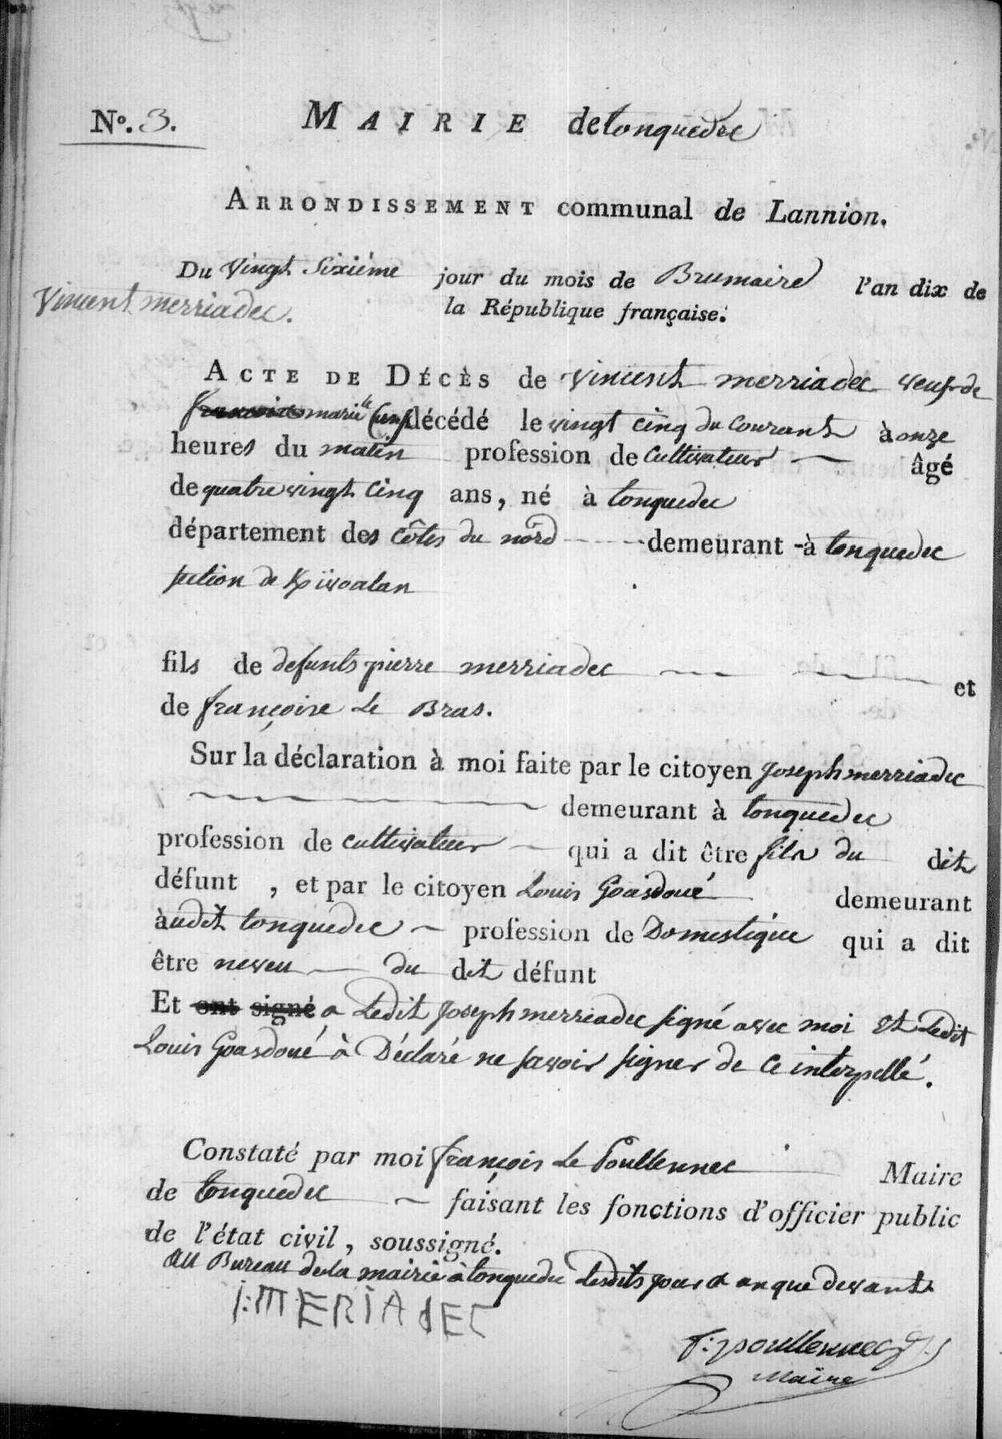 N°. 3. MAIRIE de tonquedec
ARRONDISSEMENT communal de Lannion.
Du Vingt Sixiéme jour du mois de Brumaire l'an dix de
la République française.
Vincent merriadec.
ACTE DE DÉCÈS de vincent merriadec veuf de
marie décédé le vingt cinq du courant à onze
heures du matin profession de cultivateur âgé
de quatre vingt cinq ans, né à tonquedec
département des côtes du nord demeurant à tonquedec
section de
fils de defunts pierre merriadec et
de françoise Le Bras.
Sur la déclaration à moi faite par le citoyen Joseph merriadec
demeurant à tonquedec
profession de cultivateur qui a dit être fils du dit
défunt , et par le citoyen Louis Goasdoué demeurant
àudit tonquedec profession de Domestique qui a dit
être neveu du dit défunt
Et ont signé a Ledit Joseph merriadec signé avec moi et Ledit
Louis Goasdoué à Déclaré ne savoir signer de ce interpellé.
Constaté par moi françois Le Poullennec Maire
de tonquedec faisant les fonctions d'officier public
de l'état civil, soussigné.
au Bureau dela mairie à tonquedec Lesdits jour & an que devant
I:MERIAdEC
f: poullennec
Maire